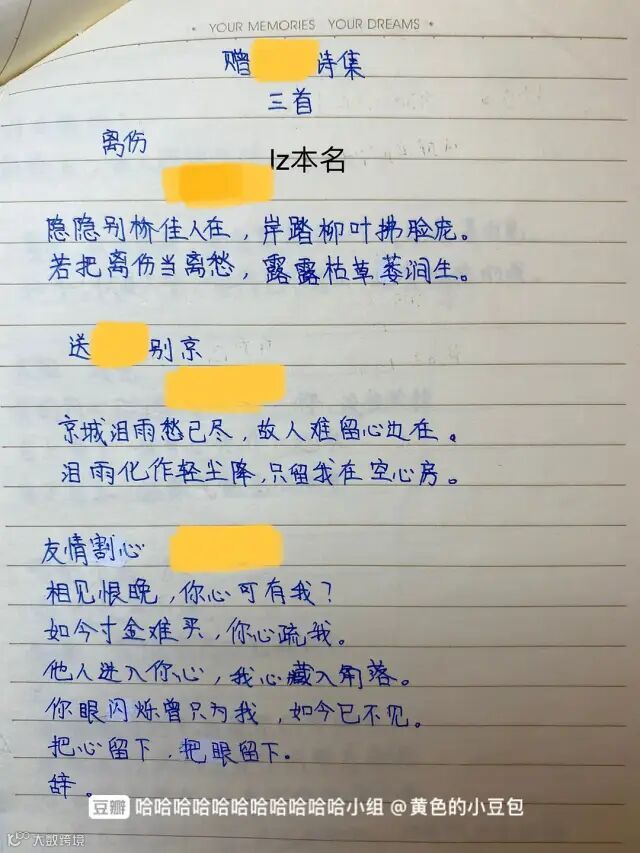 YOUR MEMORIES YOUR DREAMS
赠 诗集
三首
离伤
lz本名
隐隐别桥佳人在，岸踏柳叶拂脸庞。
若把离伤当离愁，露露枯草萎涧生。
送 别京
京城泪雨愁已尽，故人难留心边在。
泪雨化作轻尘降，只留我在空心房。
友情割心
相见恨晚，你心可有我？
如今寸金难买，你心疏我。
他人进入你心，我心藏入角落。
你眼闪烁曾只为我，如今已不见。
把心留下，把眼留下。
辞。
豆瓣 哈哈哈哈哈哈哈哈哈哈哈小组 @黄色的小豆包
大数跨境